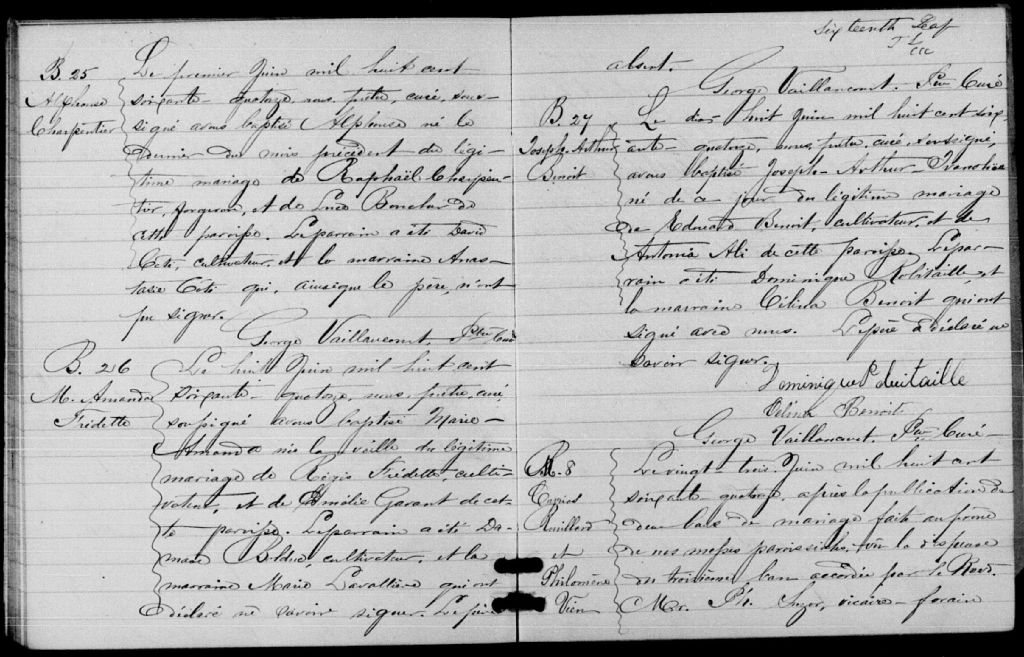 B. 25
Alphonse
Charpentier
Le premier Juin mil huit cent
soixante quatorze, nous, prêtre, curé, sous-
signé avons baptisé Alphonse né le
dernier du mois précédent du légi-
time mariage de Raphaël Charpen-
tier, forgeron, et de Luce Bouchard de
cette paroisse. Le parrain a été David
Coté, cultivateur, et la marraine Anas-
tasie Coté qui, ainsi que le père, n'ont
pu signer.
George Vaillancourt Ptre Curé
B. 26
M. Amanda
Fredette
Le huit Juin mil huit cent
soixante-quatorze, nous, prêtre, curé,
soussigné avons baptisé Marie-
Amanda née la veille du légitime
mariage de Régis Fredette, culti-
vateur, et de Amélie Garant de cet-
te paroisse. Le parrain a été Da-
mase cultivateur, et la
marraine Marie Lavallière qui ont
déclaré ne savoir signer. Le père
Sixteenth Leaf
absent.
George Vaillancourt. Ptre Curé
B. 27
Joseph-Arthur
Benoit
Le dix huit Juin mil huit cent soix-
ante-quatorze, nous, prêtre, curé, soussigné,
avons baptisé Joseph-Arthur-
né de ce jour du légitime mariage
de Edouard Benoit, cultivateur, et de
Antonia Ali de cette paroisse. Le par-
rain a été Dominique Robitaille, et
la marraine Célina Benoit qui ont
signé avec nous. Le père a déclaré ne
savoir signer.
Dominique Robitaille
Célina Benoit
George Vaillancourt. Ptre Curé
M. 8
Rouillard
et
Philomène
Vien
Le vingt-trois Juin mil huit cent
soixante-quatorze, après la publication de
deux bans de mariage faite au prône
de nos messes paroissiales, vu la dispense
du troisième ban accordée par le Révd.
Mr. Ph. Suzor, vicaire-forain